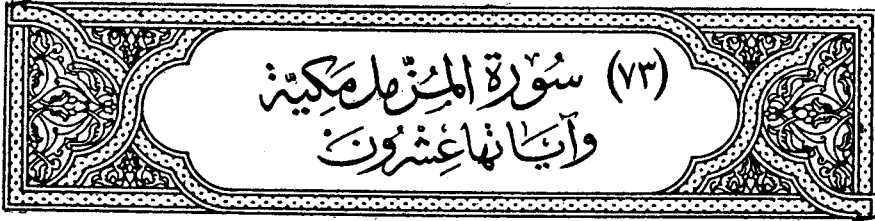 (٧٣) سُورَة المُزَّمل مَكيَّة
وآيَاتها عِشرُونَ